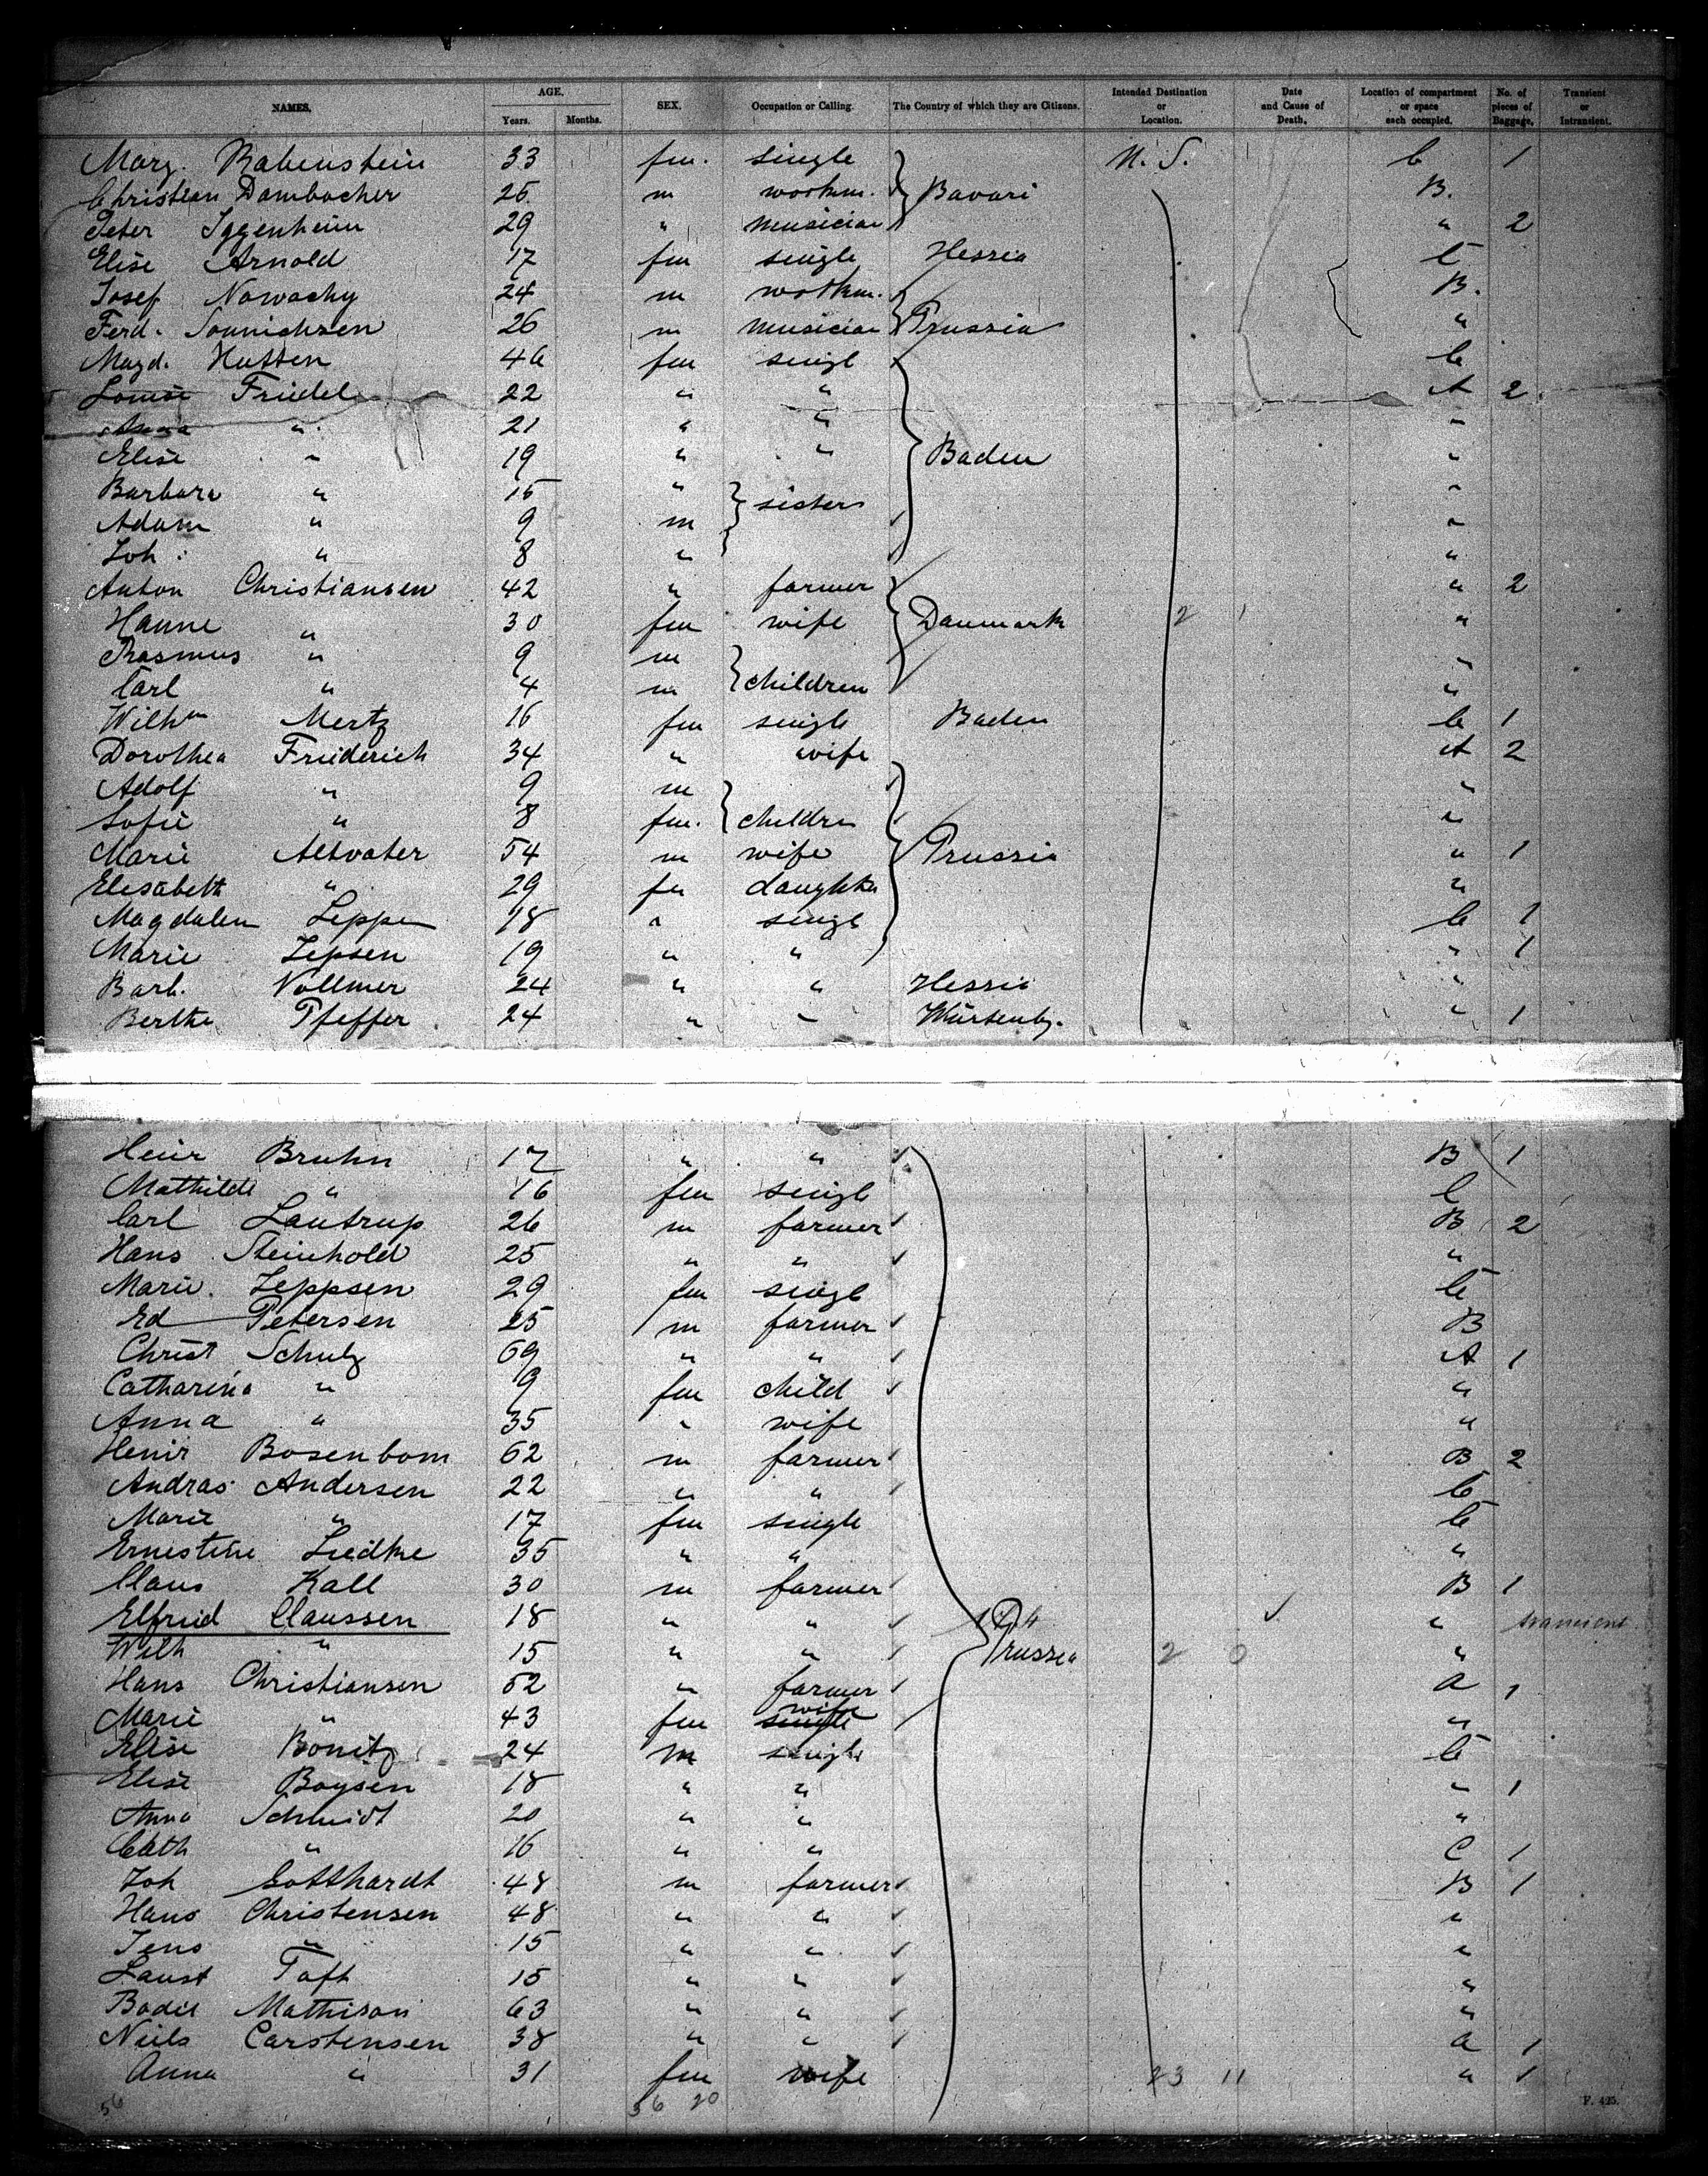 NAMES. AGE. Years. Months. SEX. Occupation or Calling. The Country of which they are Citizens. Intended Destination or Location. Date and Cause of Death. Location of compartment or space each occupied. No. of pieces of Baggage. Transient or Intransient.
Marg. Rabenstein 33 fm. single N. S. C 1
Christian Dambacher 25 m workm. Bavari B.
Peter Iggenheim 29 " musician " 2
Elise Arnold 17 fm single Hessia C
Josef Nowacky 24 m workm. B.
Ferd. Sonnichsen 26 m musician Prussia "
Magd. Hutten 46 fm singl C
Louise Friedel 22 " " A 2
Anna " 21 " " "
Elise " 19 " " Baden "
Barbara " 15 " sisters "
Adam " 9 m "
Joh: " 8 " "
Anton Christiansen 42 " farmer " 2
Hanne " 30 fm wife Danmark 2 1 "
Rasmus " 9 m "
Carl " 4 m children "
Wilhm Mertz 16 fm single Baden C 1
Dorothea Friederich 34 " wife A 2
Adolf " 9 m "
Sofie " 8 fm. childre "
Marie Altvater 54 m wife Prussia " 1
Elisabeth " 29 fm daughter "
Magdalen Jeppe 18 " singl C 1
Marie Jepsen 19 " " " 1
Barb. Vollmer 24 " " Hessia "
Bertha Pfeffer 24 " " Würtenbg. " 1
Heinr Bruhn 17 " " B 1
Mathilde " 16 fm singl C
Carl Lautrup 26 m farmer B 2
Hans Steinhold 25 " " "
Marie. Jeppsen 29 fm singl C
Ed Petersen 25 m farmer B
Christ Schulz 69 " " A 1
Catharina " 9 fm child "
Anna " 35 " wife "
Henir Bosenbom 62 m farmer B 2
Andras Andersen 22 " " C
Marie " 17 fm single C
Ernestine Liedke 35 " " "
Claus Kall 30 m farmer B 1
Elfried Claussen 18 " " " transient
Wilh " 15 " " Prussia 2 0 "
Hans Christiansen 52 " farmer a 1
Marie " 43 fm single wife "
Elise Bonitz 24 m single C
Elise Boysen 18 " " " 1
Anna Schmidt 20 " " "
Cath " 16 " " C 1
Joh Gotthardt 48 m farmer B 1
Hans Christensen 48 " " "
Jens " 15 " " "
Laust Toft 15 " " "
Bodil Mathison 63 " " "
Niels Carstensen 38 " " a 1
Anna " 31 fm wife 23 11 " 1
56 36 20 F. 425.